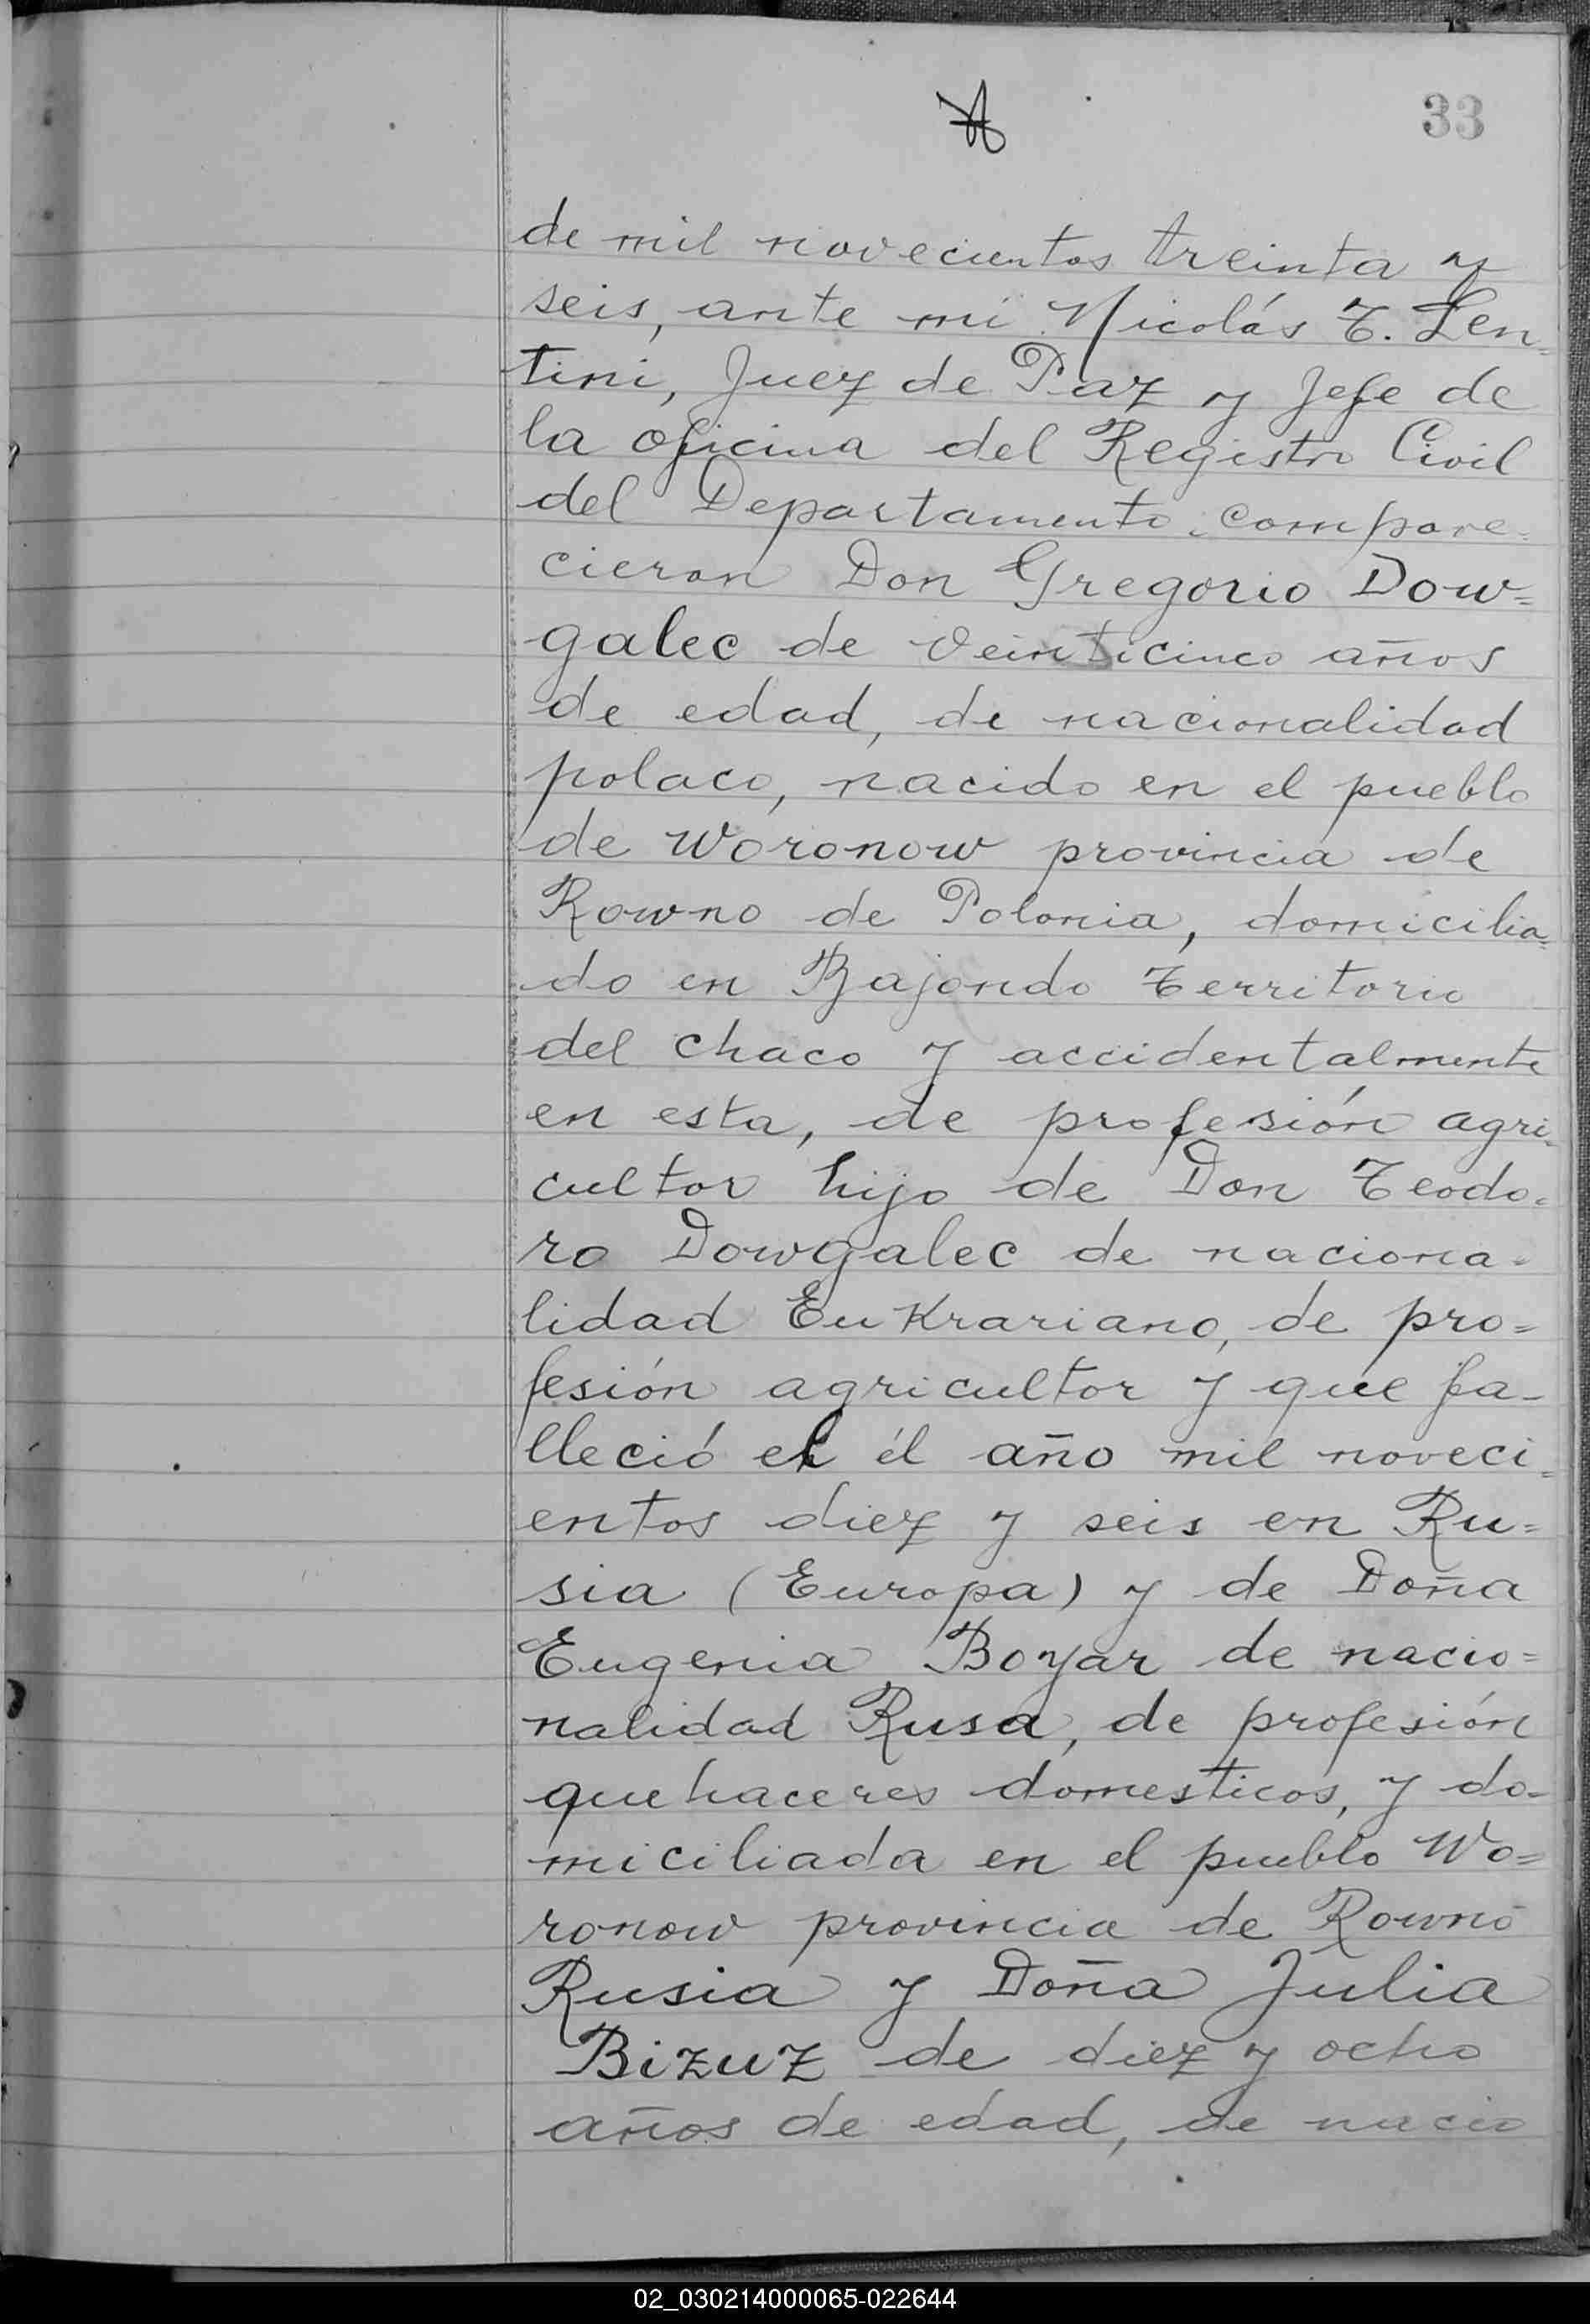 33
de mil novecientos treinta y
seis, ante mi Nicolás T. Len=
tini, Juez de Paz y Jefe de
la oficina del Registro Civil
del Departamento, compare=
cieron Don Gregorio Dow=
galec de veinticinco años
de edad, de nacionalidad
polaco, nacido en el pueblo
de Woronow provincia de
Rowno de Polonia, domicilia=
do en Bajondo Territorio
del Chaco y accidentalmente
en esta, de profesión agri=
cultor hijo de Don Teodo=
ro Dowgalec de naciona=
lidad Eukrariano, de pro=
fesión agricultor y que fa-
lleció el él año mil noveci=
entos diez y seis en Ru=
sia (Europa) y de Doña
Eugenia Boyar de nacio=
nalidad Rusa, de profesión
quehaceres domesticos, y do=
miciliada en el pueblo Wo=
ronow provincia de Rowno
Rusia y Doña Julia
Bizuz de diez y ocho
años de edad, de nacio
02_030214000065-022644